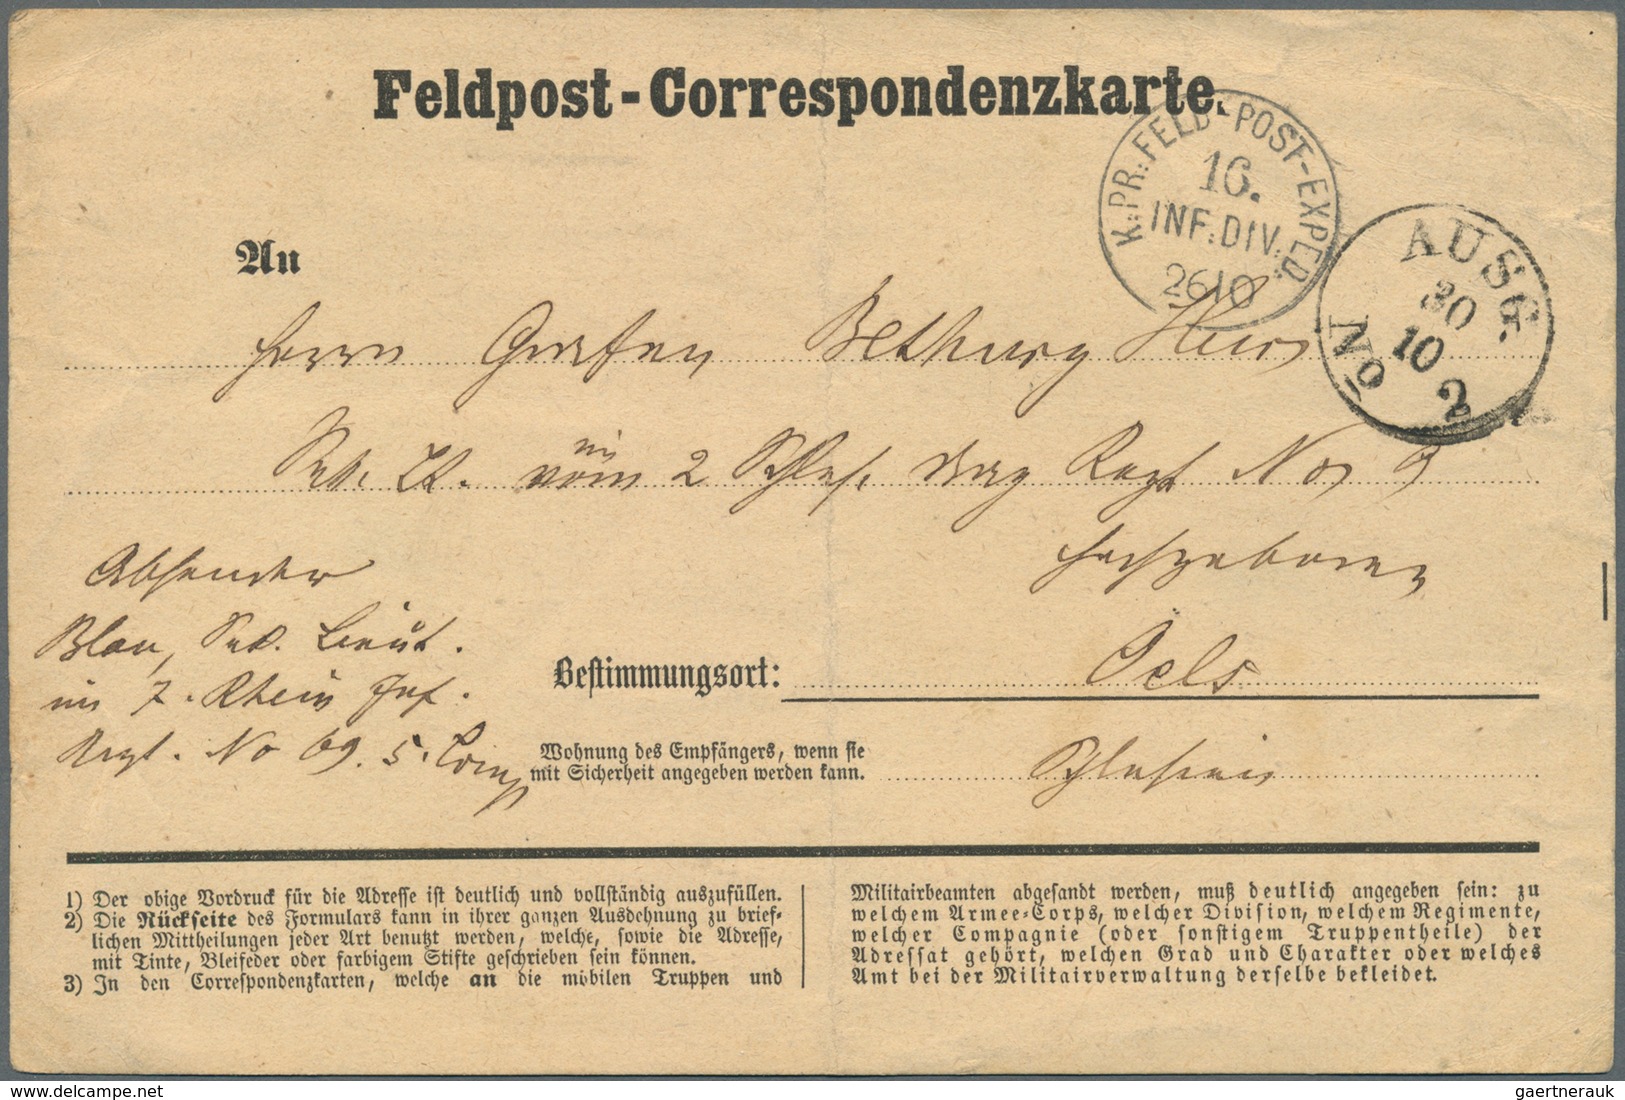 Feldpost-Correspondenzkarte.
K:PR:FELD-POST-EXPED:
16.
INF:DIV:
26 10
AUSG.
30
10
2
No
An
Herrn Grafen Bethusy Huc
Sek. Lt. im 2 Schles. Drag Regt No 8
Hochgeboren
Absender
Blau, Sek. Lieut.
im 7. Rhein Inf.
Regt. No 69. 5. Comp
Bestimmungsort: Oels
Wohnung des Empfängers, wenn sie
mit Sicherheit angegeben werden kann.
Schlesien
1) Der obige Vordruck für die Adresse ist deutlich und vollständig auszufüllen.
2) Die Rückseite des Formulars kann in ihrer ganzen Ausdehnung zu brief-
lichen Mittheilungen jeder Art benutzt werden, welche, sowie die Adresse,
mit Tinte, Bleifeder oder farbigem Stifte geschrieben sein können.
3) In den Correspondenzkarten, welche an die mobilen Truppen und
Militairbeamten abgesandt werden, muß deutlich angegeben sein: zu
welchem Armee-Corps, welcher Division, welchem Regimente,
welcher Compagnie (oder sonstigem Truppentheile) der
Adressat gehört, welchen Grad und Charakter oder welches
Amt bei der Militairverwaltung derselbe bekleidet.
www.delcampe.net
gaertnerauk